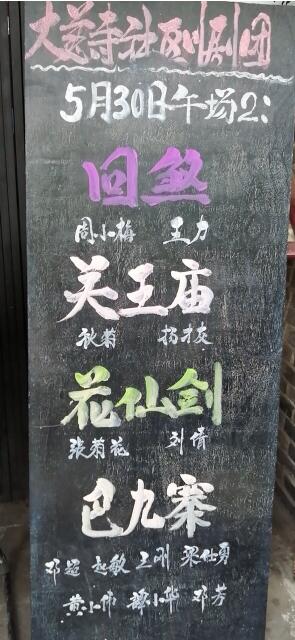 大慈寺社区川剧团
5月30日午场2:
回煞
周小梅 王力
关王庙
秋菊 扬才灰
花仙剑
张菊花 刘倩
巴九寨
邓超 赵敏 王刚 梁仕勇
黄小伟 谭小华 邓芳